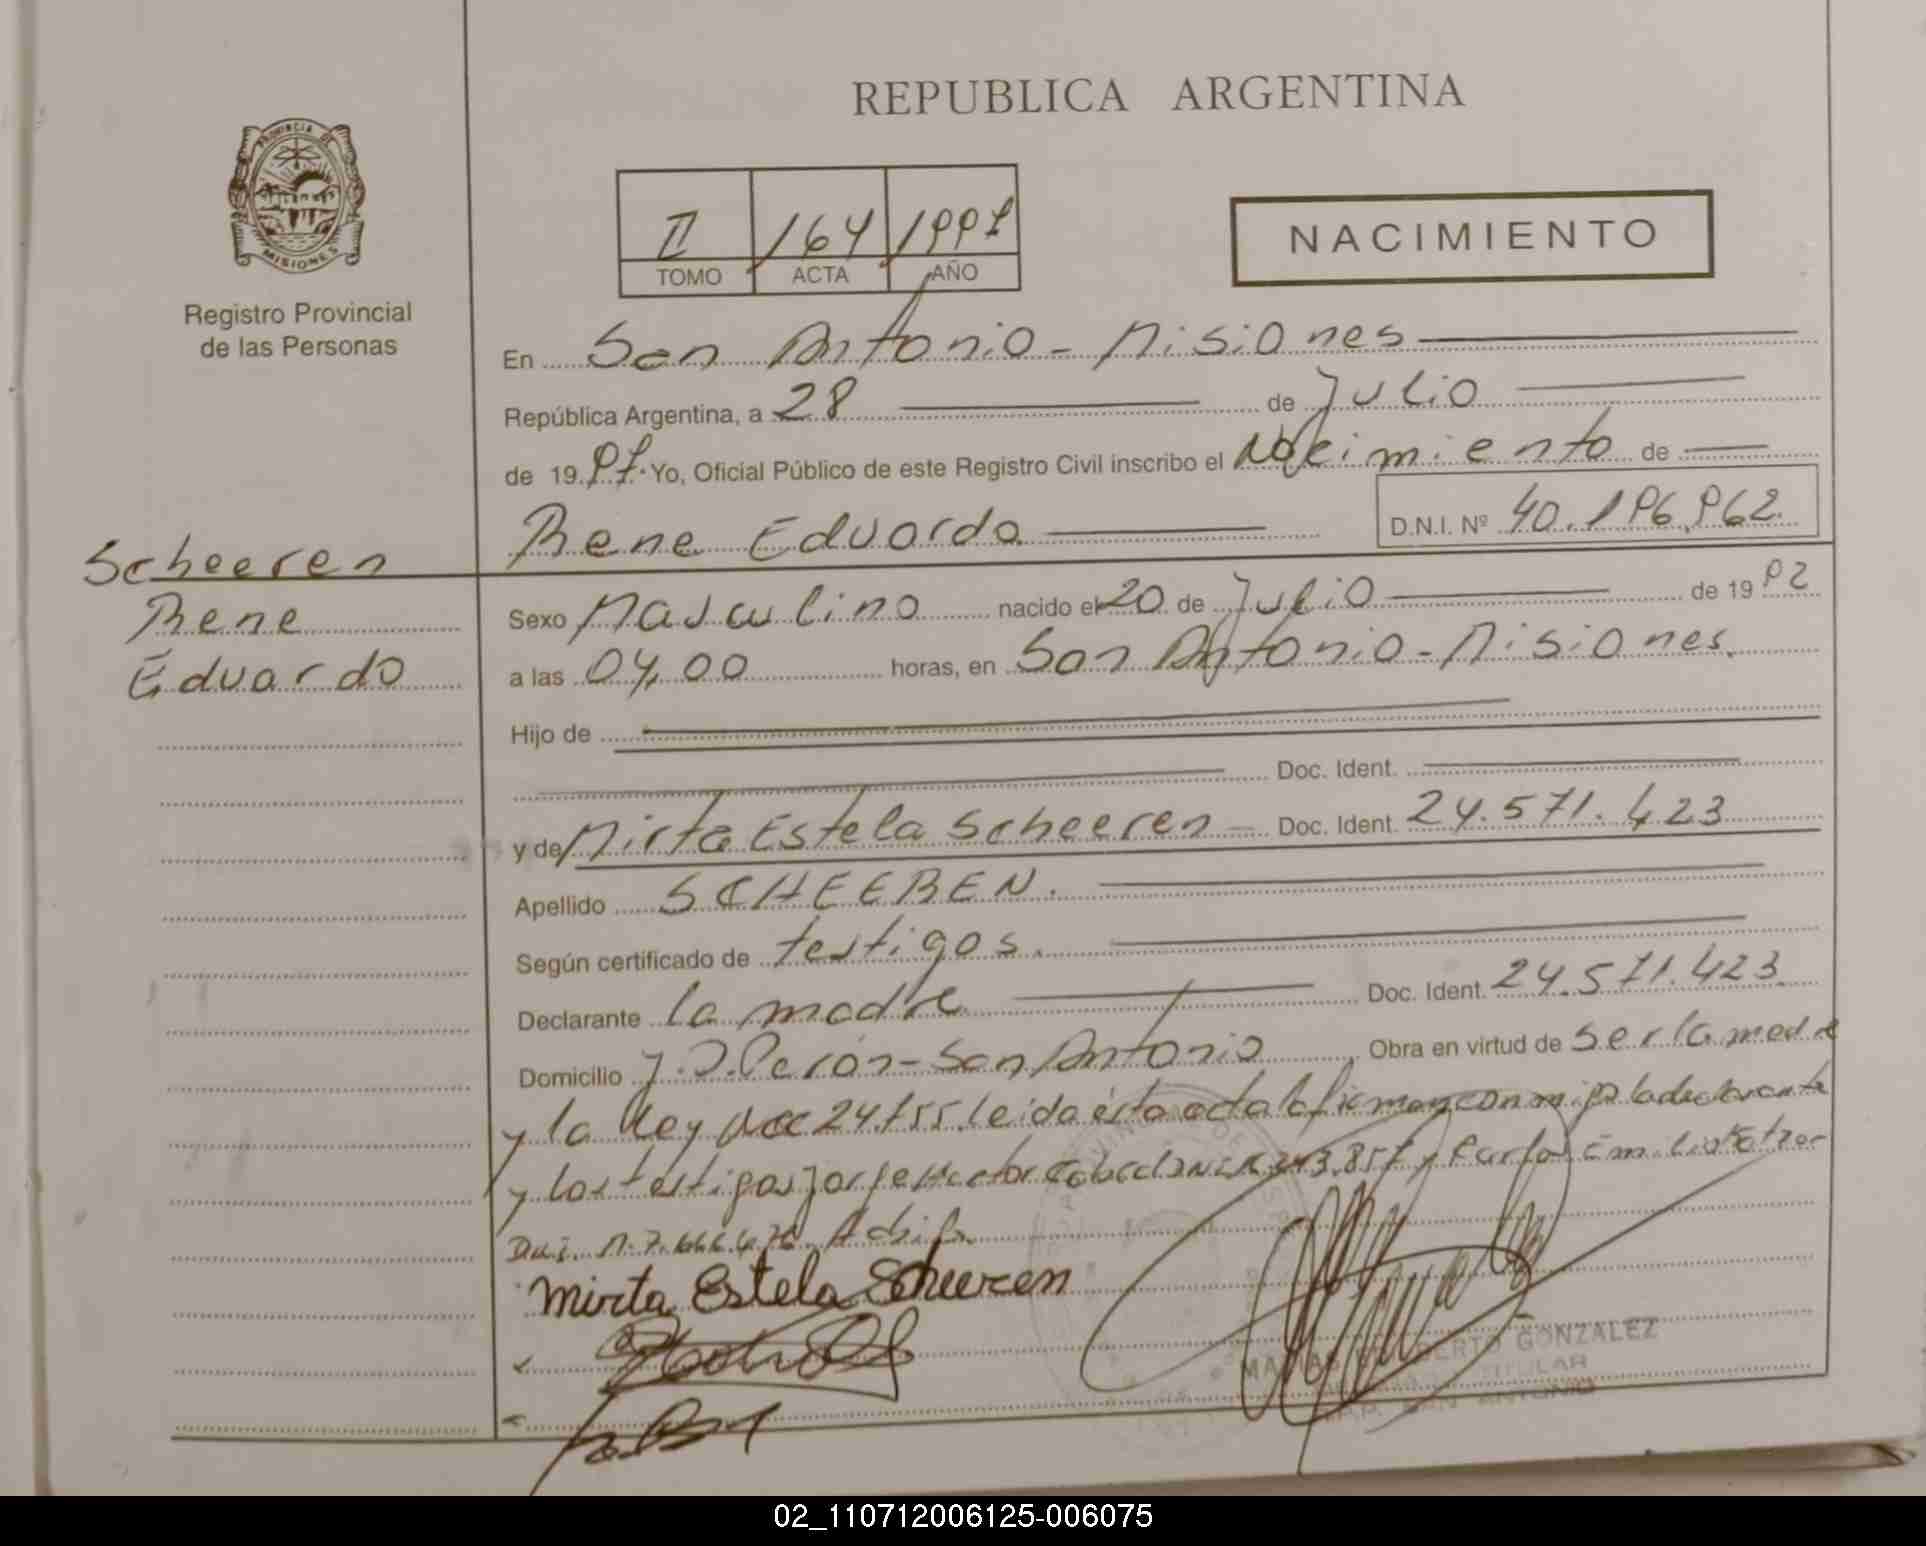 REPUBLICA ARGENTINA
PROVINCIA DE
MISIONES
Registro Provincial
de las Personas
II 164 1997
TOMO ACTA AÑO
NACIMIENTO
En San Antonio - Misiones
República Argentina, a 28 de Julio
de 1997. Yo, Oficial Público de este Registro Civil inscribo el Nacimiento de
Rene Eduardo D.N.I. Nº 40.196.962
Scheeren
Rene
Eduardo
Sexo Masculino nacido el 20 de Julio de 1992
a las 04,00 horas, en San Antonio - Misiones.
Hijo de
Doc. Ident.
y de Mirta Estela Scheeren - Doc. Ident. 24.571.423
Apellido SCHEEREN.
Según certificado de testigos.
Declarante la madre Doc. Ident. 24.571.423
Domicilio J.D.Perón - San Antonio Obra en virtud de ser la madre
y la Ley 24.755. leida ésta acta la firman conmigo la declarante
y los testigos Jorge Hector y Carlos Emilio
Mirta Estela Scheeren
GONZALEZ
TITULAR
SAN ANTONIO
02_110712006125-006075